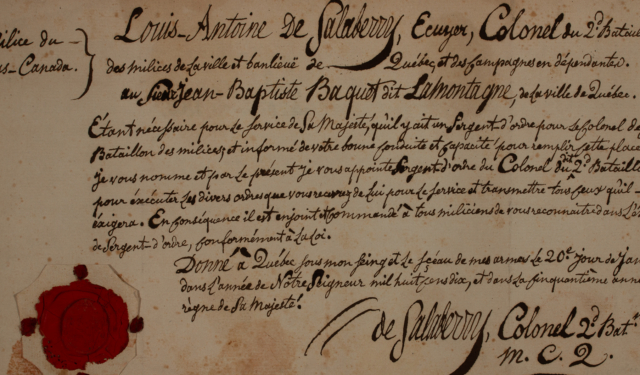 ilice du
s-Canada.
Louis-Antoine De Salaberry, Ecuyer, Colonel du 2d Batail
des milices de La ville et banlieüe de Québec, et des Campagnes en dépendantes.
au Sieur Jean-Baptiste Baquet dit LaMontagne, de La ville de Québec.
Étant nécessaire pour Le Service de Sa Majesté, qu'il y ait un Sergent-d'ordre pour Le Colonel de
Bataillon des milices, et informé de votre bonne Conduite et Capacité pour remplir Cette place
je vous nomme et par Le présent je vous appointe Sergent d'ordre du Colonel du 2d Bataill
pour éxécuter Les divers ordres que vous recevrez de Lui pour Le Service et transmettre tous Ceux qu'il
éxigera. En Conséquence il est enjoint et Commandé à tous miliciens de vous reconnaitre dans L'é
de Sergent-d'ordre, Conformément à La Loi.
Donné à Québec sous mon Seing et Le Sçeau de mes armes Le 20e jour de Jan
dans L'année de Notre Seigneur mil huit Cens dix, et dans La Cinquantième anné
règne de Sa Majesté.
de Salaberry, Colonel 2d Batn
M. C. Q.